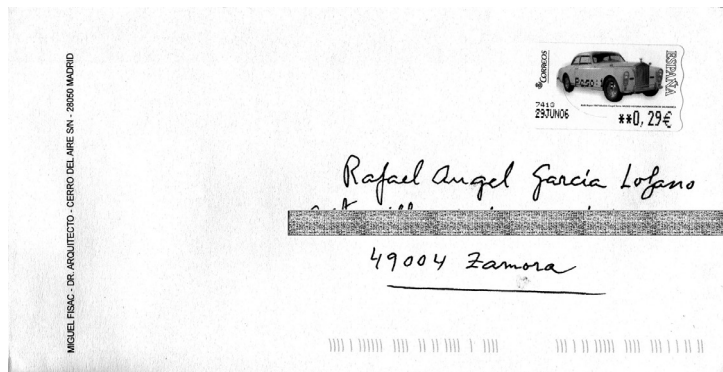 MIGUEL FISAC - DR. ARQUITECTO - CERRO DEL AIRE S/N - 28050 MADRID
CORREOS
ESPAÑA
7413
29JUN06
**0,29€
Rafael Angel García Lozano
49004 Zamora